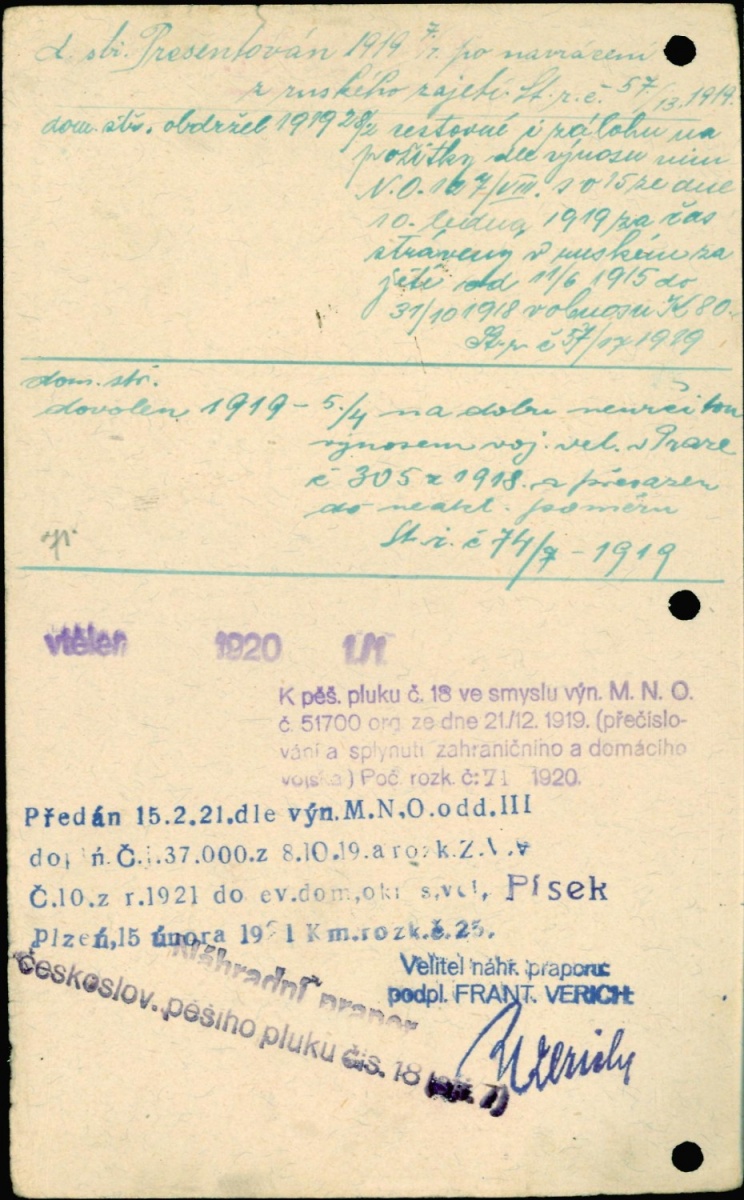 Presentován 1919 po navrácení
z ruského zajetí. St. r. č. 57/13.1919.
dom. stř. obdržel 1919 28/2 cestovné i zálohu na
požitky dle výnosu min
N.O. 167/VIII. ze dne
10. ledna 1919 za čas
strávený v ruském za
jetí od 11/6 1915 do
31/10 1918 v obnosu K 80.-
St. r. č 57/ 1919
dom. stř.
dovolen 1919 - 5./4 na dobu neurčitou
výnosem voj. vel. v Praze
č 305 z 1918. a přeřazen
do neakt. poměru
St. r. č 74/7 - 1919
vtělen 1920 1./1
K pěš. pluku č. 18 ve smyslu výn. M. N. O.
č. 51700 org. ze dne 21/12. 1919. (přečíslo-
vání a splynutí zahraničního a domácího
vojska) Poč. rozk. č: 71 1920.
Předán 15.2.21.dle výn.M.N.O.odd.III
dopl ň.Č.j.37.000.z 8.10.19.a rozk.Z.V.V
Č.10.z r.1921 do ev.dom,okr s,vel, Písek
Plzeň,15 února 1921 Km.rozk.č.25.
Velitel náhr. praporu:
podpl. FRANT. VERICH.
Náhradní prapor
Českoslov. pěšího pluku čís. 18
Verich